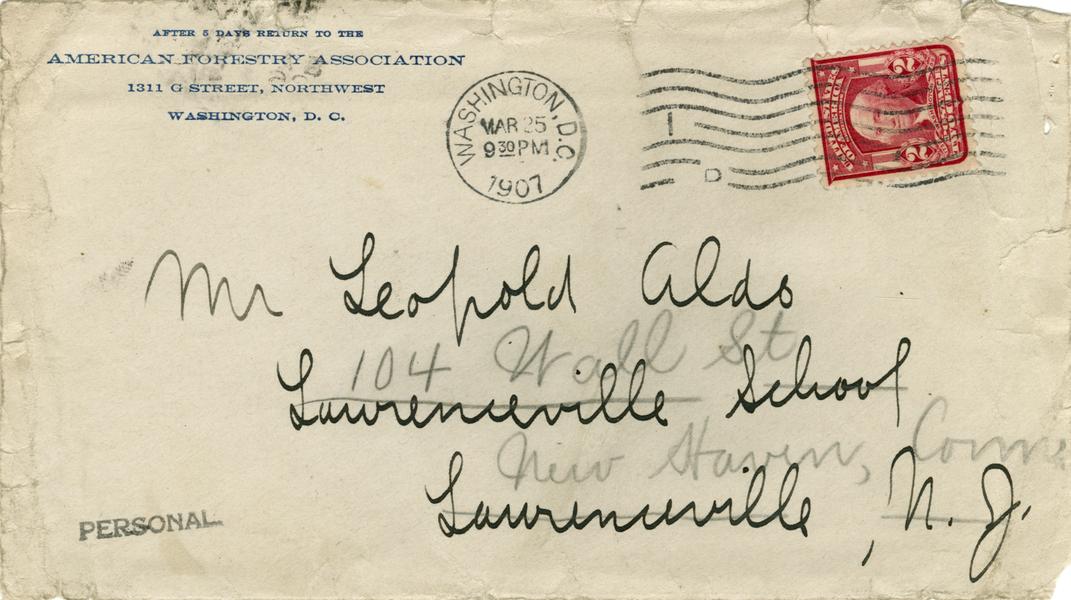 AFTER 5 DAYS RETURN TO THE
AMERICAN FORESTRY ASSOCIATION
1311 G STREET, NORTHWEST
WASHINGTON, D. C.
WASHINGTON, D.C.
MAR 25
9 30 PM
1907
1
D
UNITED STATES OF AMERICA
2 2
Mr Leopold Aldo
104 Wall St
Lawrenceville School
New Haven, Conn
Lawrenceville, N. J.
PERSONAL